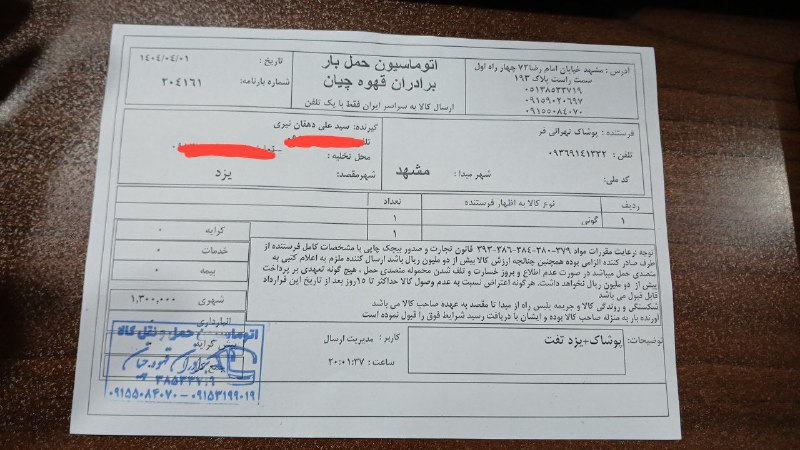 آدرس : مشهد خیابان امام رضا۷۲ چهار راه اول
سمت راست پلاک ۱۹۳
۰۵۱۳۸۵۳۳۷۱۹
۰۹۱۵۹۰۲۰۶۹۷
۰۹۱۵۵۰۸۴۰۷۰
اتوماسیون حمل بار
برادران قهوه چیان
ارسال کالا به سراسر ایران فقط با یک تلفن
تاریخ : ۱۴۰۴/۰۴/۰۱
شماره بارنامه: ۲۰۴۱۶۱
فرستنده : پوشاک تهرانی فر
تلفن : ۰۹۳۶۹۱۴۱۳۳۲
کد ملی:
شهر مبدا : مشهد
گیرنده: سید علی دهقان نیری
محل تخلیه :
شهرمقصد: یزد
ردیف نوع کالا به اظهار فرستنده تعداد
۱ گونی ۱
۱
کرایه ۰
خدمات ۰
بیمه ۰
شهری ۱,۳۰۰,۰۰۰
انبارداری
پیش کرایه
توجه رعایت مقررات مواد ۳۷۹-۳۸۰-۳۸۴-۳۸۶-۳۹۳ قانون تجارت و صدور بیجک چاپی با مشخصات کامل فرستنده از
طرف صادر کننده الزامی بوده همچنین چنانچه ارزش کالا بیش از دو ملیون ریال باشد ارسال کننده ملزم به اعلام کتبی به
متصدی حمل میباشد در صورت عدم اطلاع و بروز خسارت و تلف شدن محموله متصدی حمل ، هیچ گونه تعهدی بر پرداخت
بیش از دو ملیون ریال نخواهد داشت. هرگونه اعتراض نسبت به عدم وصول کالا حداکثر تا ۱۵روز بعد از تاریخ این قرارداد
قابل قبول می باشد
شکستگی و روندگی کالا و جریمه پلیس راه از مبدا تا مقصد به عهده صاحب کالا می باشد
آورنده بار به منزله صاحب کالا بوده و ایشان با دریافت رسید شرایط فوق را قبول نموده است
توضیحات: پوشاک+یزد تفت
کاربر : مدیریت ارسال
ساعت : ۲۰:۰۱:۳۷
اتوماسیون حمل و نقل کالا
برادران قهوه چیان
۳۸۵۳۳۷۱۹
۰۹۱۵۵۰۸۴۰۷۰-۰۹۱۵۳۱۹۹۰۱۹